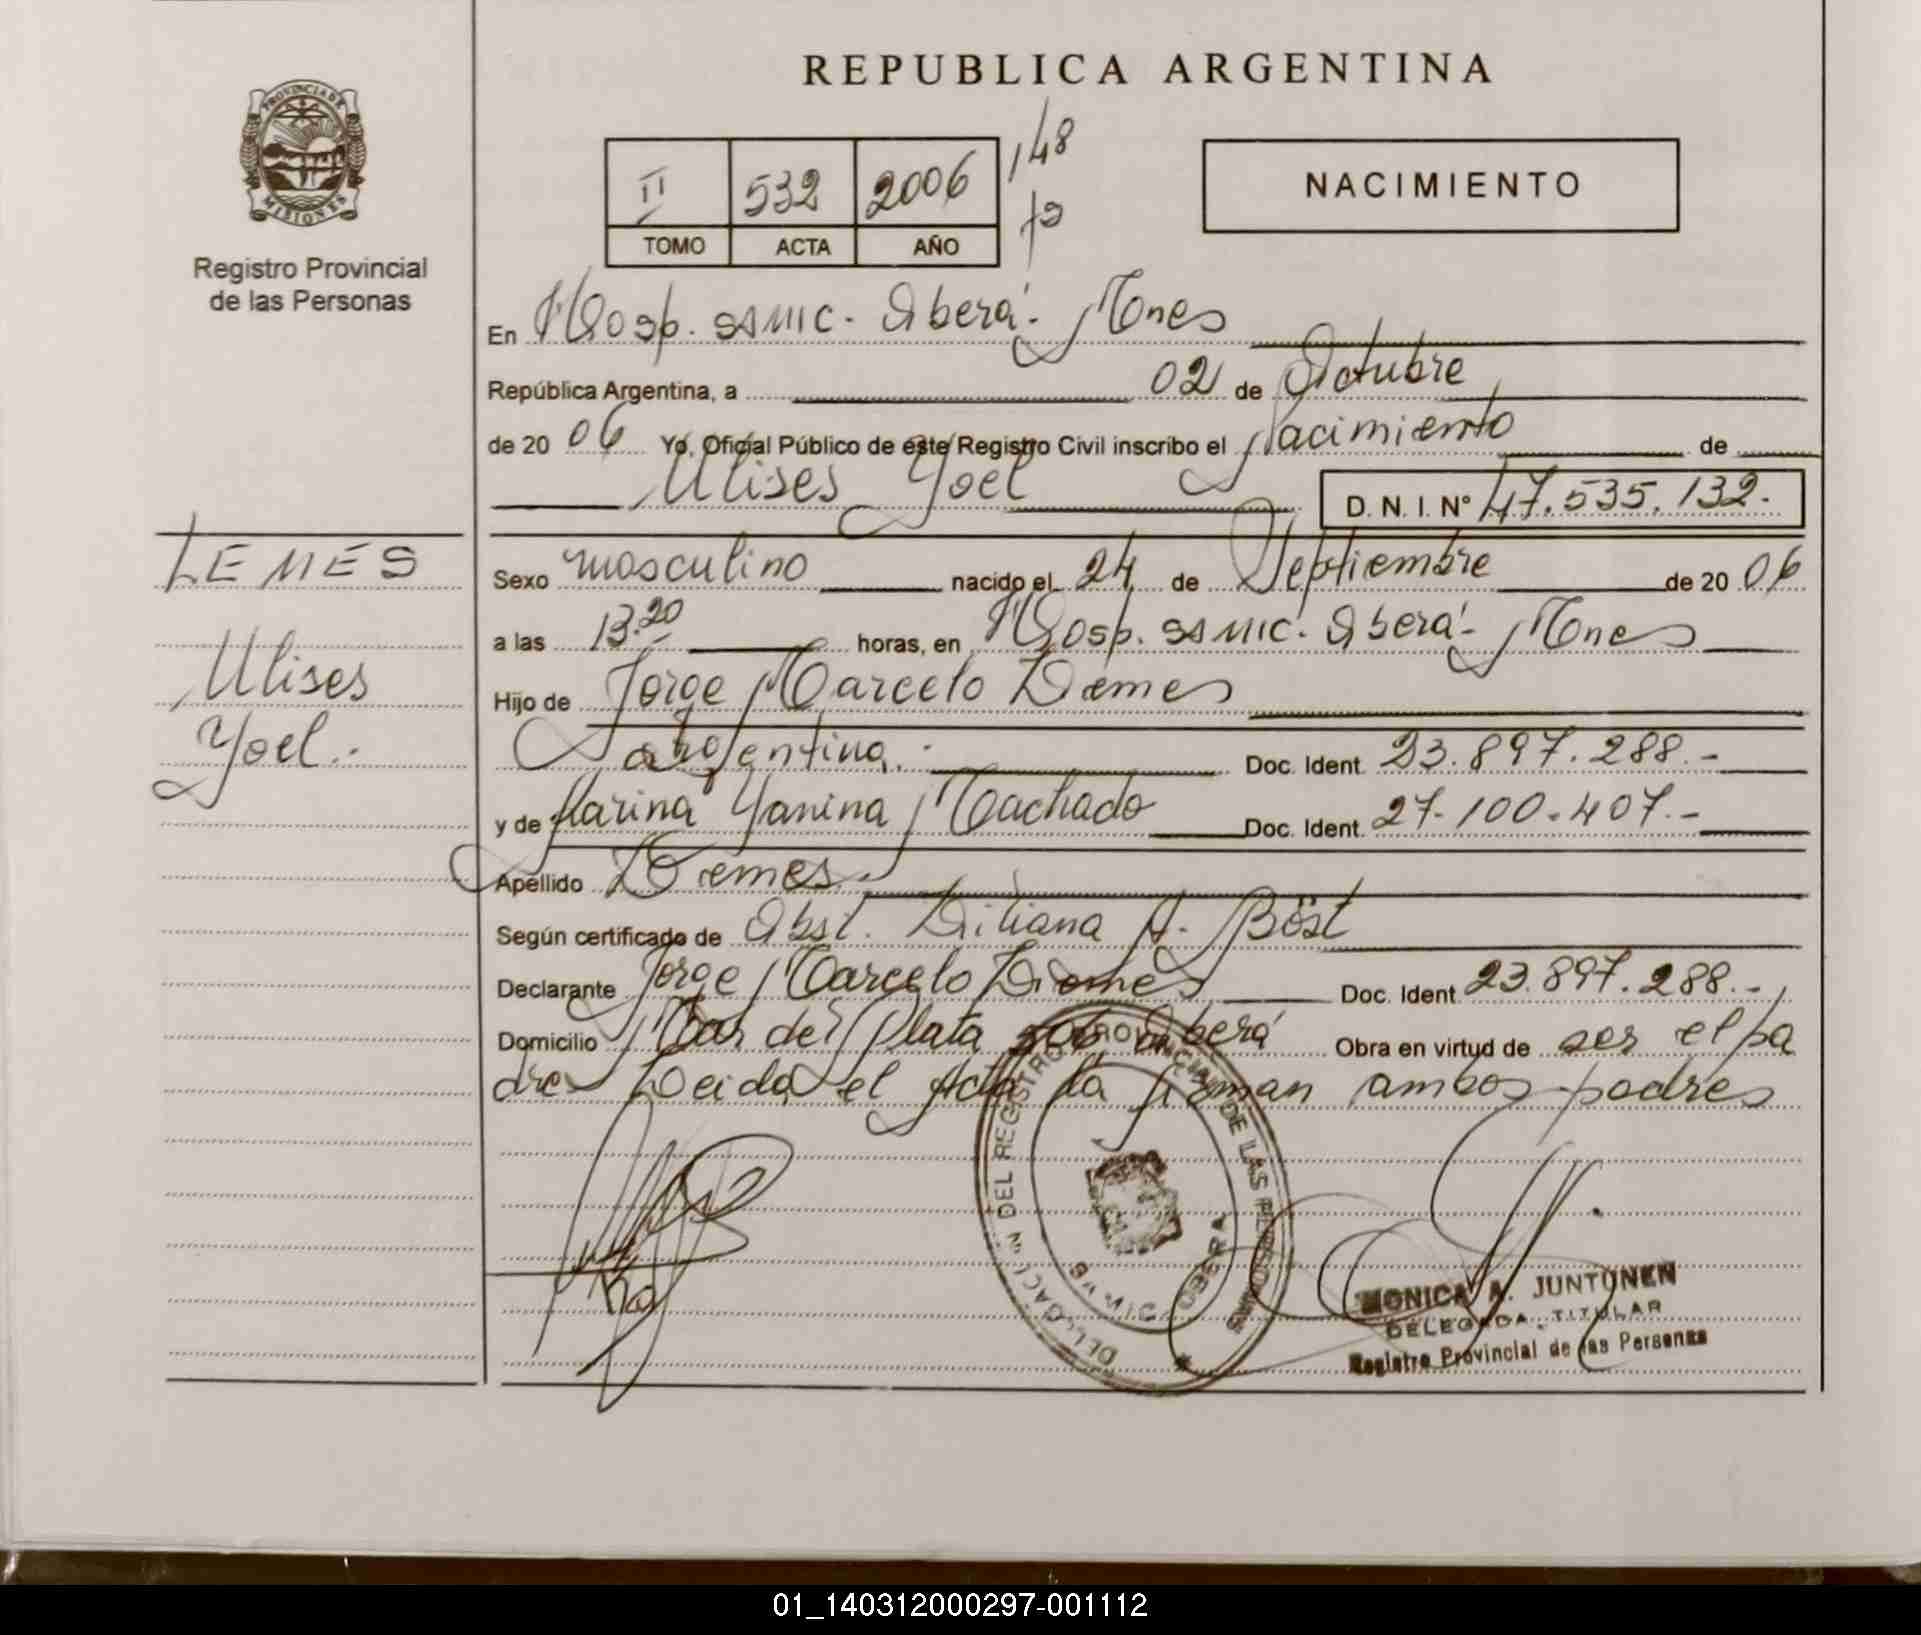 REPUBLICA ARGENTINA
PROVINCIA DE
MISIONES
Registro Provincial
de las Personas
II 532 2006 148
TOMO ACTA AÑO
NACIMIENTO
En Hosp. SAMIC. Oberá. Mnes
República Argentina, a 02 de Octubre
de 20 06 Yo, Oficial Público de este Registro Civil inscribo el Nacimiento de
Ulises Yoel D. N. I. N° 47.535.132.
LEMES
Ulises
Yoel.
Sexo masculino nacido el 24 de Septiembre de 20 06
a las 13.20 horas, en Hosp. SAMIC. Oberá- Mnes
Hijo de Jorge Marcelo Lemes
argentino. Doc. Ident. 23.897.288.-
y de Karina Yanina Machado Doc. Ident. 27.100.407.-
Apellido Lemes.
Según certificado de Obst. Liliana A. Böst
Declarante Jorge Marcelo Lemes Doc. Ident. 23.897.288.-
Domicilio Mar del Plata Oberá Obra en virtud de ser el pa
dre Leida el Acta la firman ambos padres
DEL REGISTRO PROVINCIAL DE LAS PERSONAS
OBERA
MONICA A. JUNTUNEN
DELEGADA TITULAR
Registro Provincial de las Personas
01_140312000297-001112